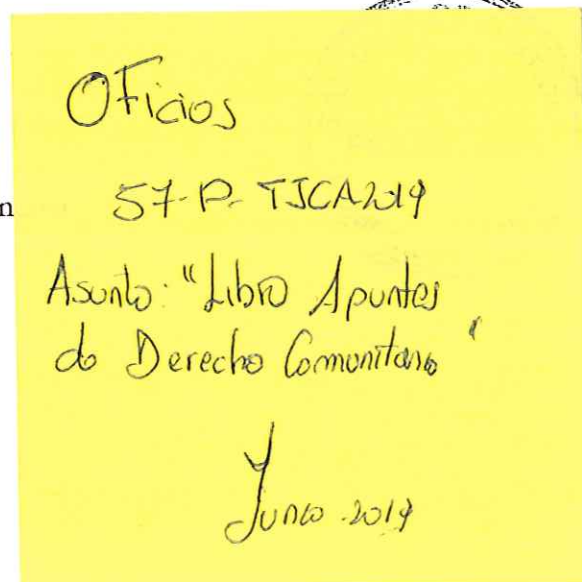 Oficios
n
57-P-TJCA2019
Asunto: "Libro Apuntes
de Derecho Comunitario"
Junio 2019